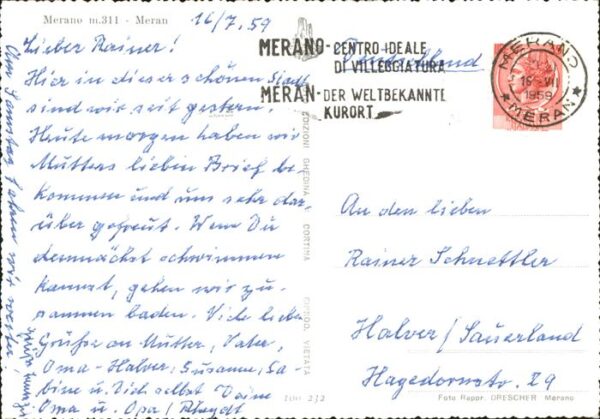 Merano m.311 - Meran
16/7.59
Lieber Rainer!
Hier in dieser schönen Stadt
sind wir seit gestern.
Heute morgen haben wir
Mutters lieben Brief be-
kommen und uns sehr dar-
über gefreut. Wenn Du
demnächst schwimmen
kannst, gehen wir zu-
sammen baden. Viele liebe
Grüße an Mutter, Vater,
Oma-Halver, Susanne, Sa-
bine u. Dich selbst Deine
Oma u. Opa/Rheydt
Am Samstag fahren wir weiter
MERANO - CENTRO IDEALE
DI VILLEGGIATURA
MERAN - DER WELTBEKANNTE
KURORT
Deutschland
MERANO
16 VII
1959
* MERAN *
EDIZIONI GHEDINA CORTINA RIPROD. VIETATA
An den lieben
Rainer Schnettler
Halver/Sauerland
Hagedornstr. 29
Foto Rappr. DRESCHER Merano